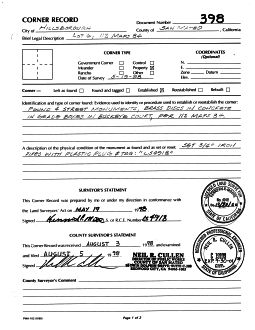 CORNER RECORD
Document Number 398
City of HILLSBOROUGH County of SAN MATEO, California
Brief Legal Description LOT 6, 113 MAPS 84
CORNER TYPE
COORDINATES
(Optional)
Government Corner Control
Meander Property
Rancho Other
Date of Survey
N.
E.
Zone Datum
Elev.
Corner — Left as found Found and tagged Established Reestablished Rebuilt
Identification and type of corner found: Evidence used to identify or procedure used to establish or reestablish the corner:
FOUND 4 STREET MONUMENTS, BRASS DISCS IN CONCRETE
IN GRADE BOXES IN BUCKEYE COURT, PER 113 MAPS 84
A description of the physical condition of the monument as found and as set or reset: SET 3/4" IRON
PIPES WITH PLASTIC PLUG & TAG
SURVEYOR'S STATEMENT
This Corner Record was prepared by me or under my direction in conformance with
the Land Surveyors' Act on MAY 19 1998
Signed L.S. or R.C.E. Number
COUNTY SURVEYOR'S STATEMENT
This Corner Record was received AUGUST 3 1998 and examined
and filed AUGUST 5 1998
Signed
NEIL R. CULLEN
County Surveyor's Comment
Page 1 of 2